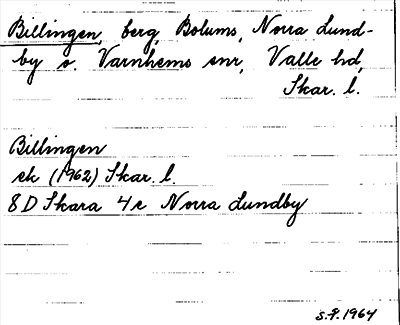 Billingen, berg, Bolums, Norra Lund-
by o. Varnhems snr, Valle hd,
Skar. l.
Billingen
ek (1962) Skar. l.
8 D Skara 4 c Norra Lundby
S.F. 1964